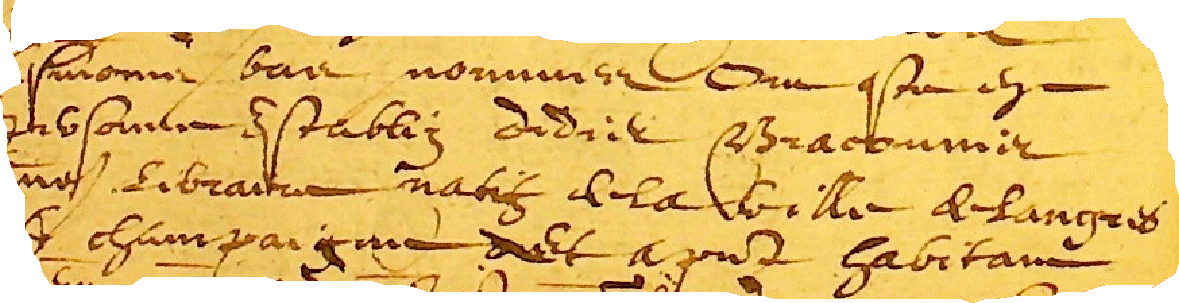 bas nommes On este en
personne Establiz didier Braconnier
libraire natif de la ville de Langres
champaigne et a pnt habitant